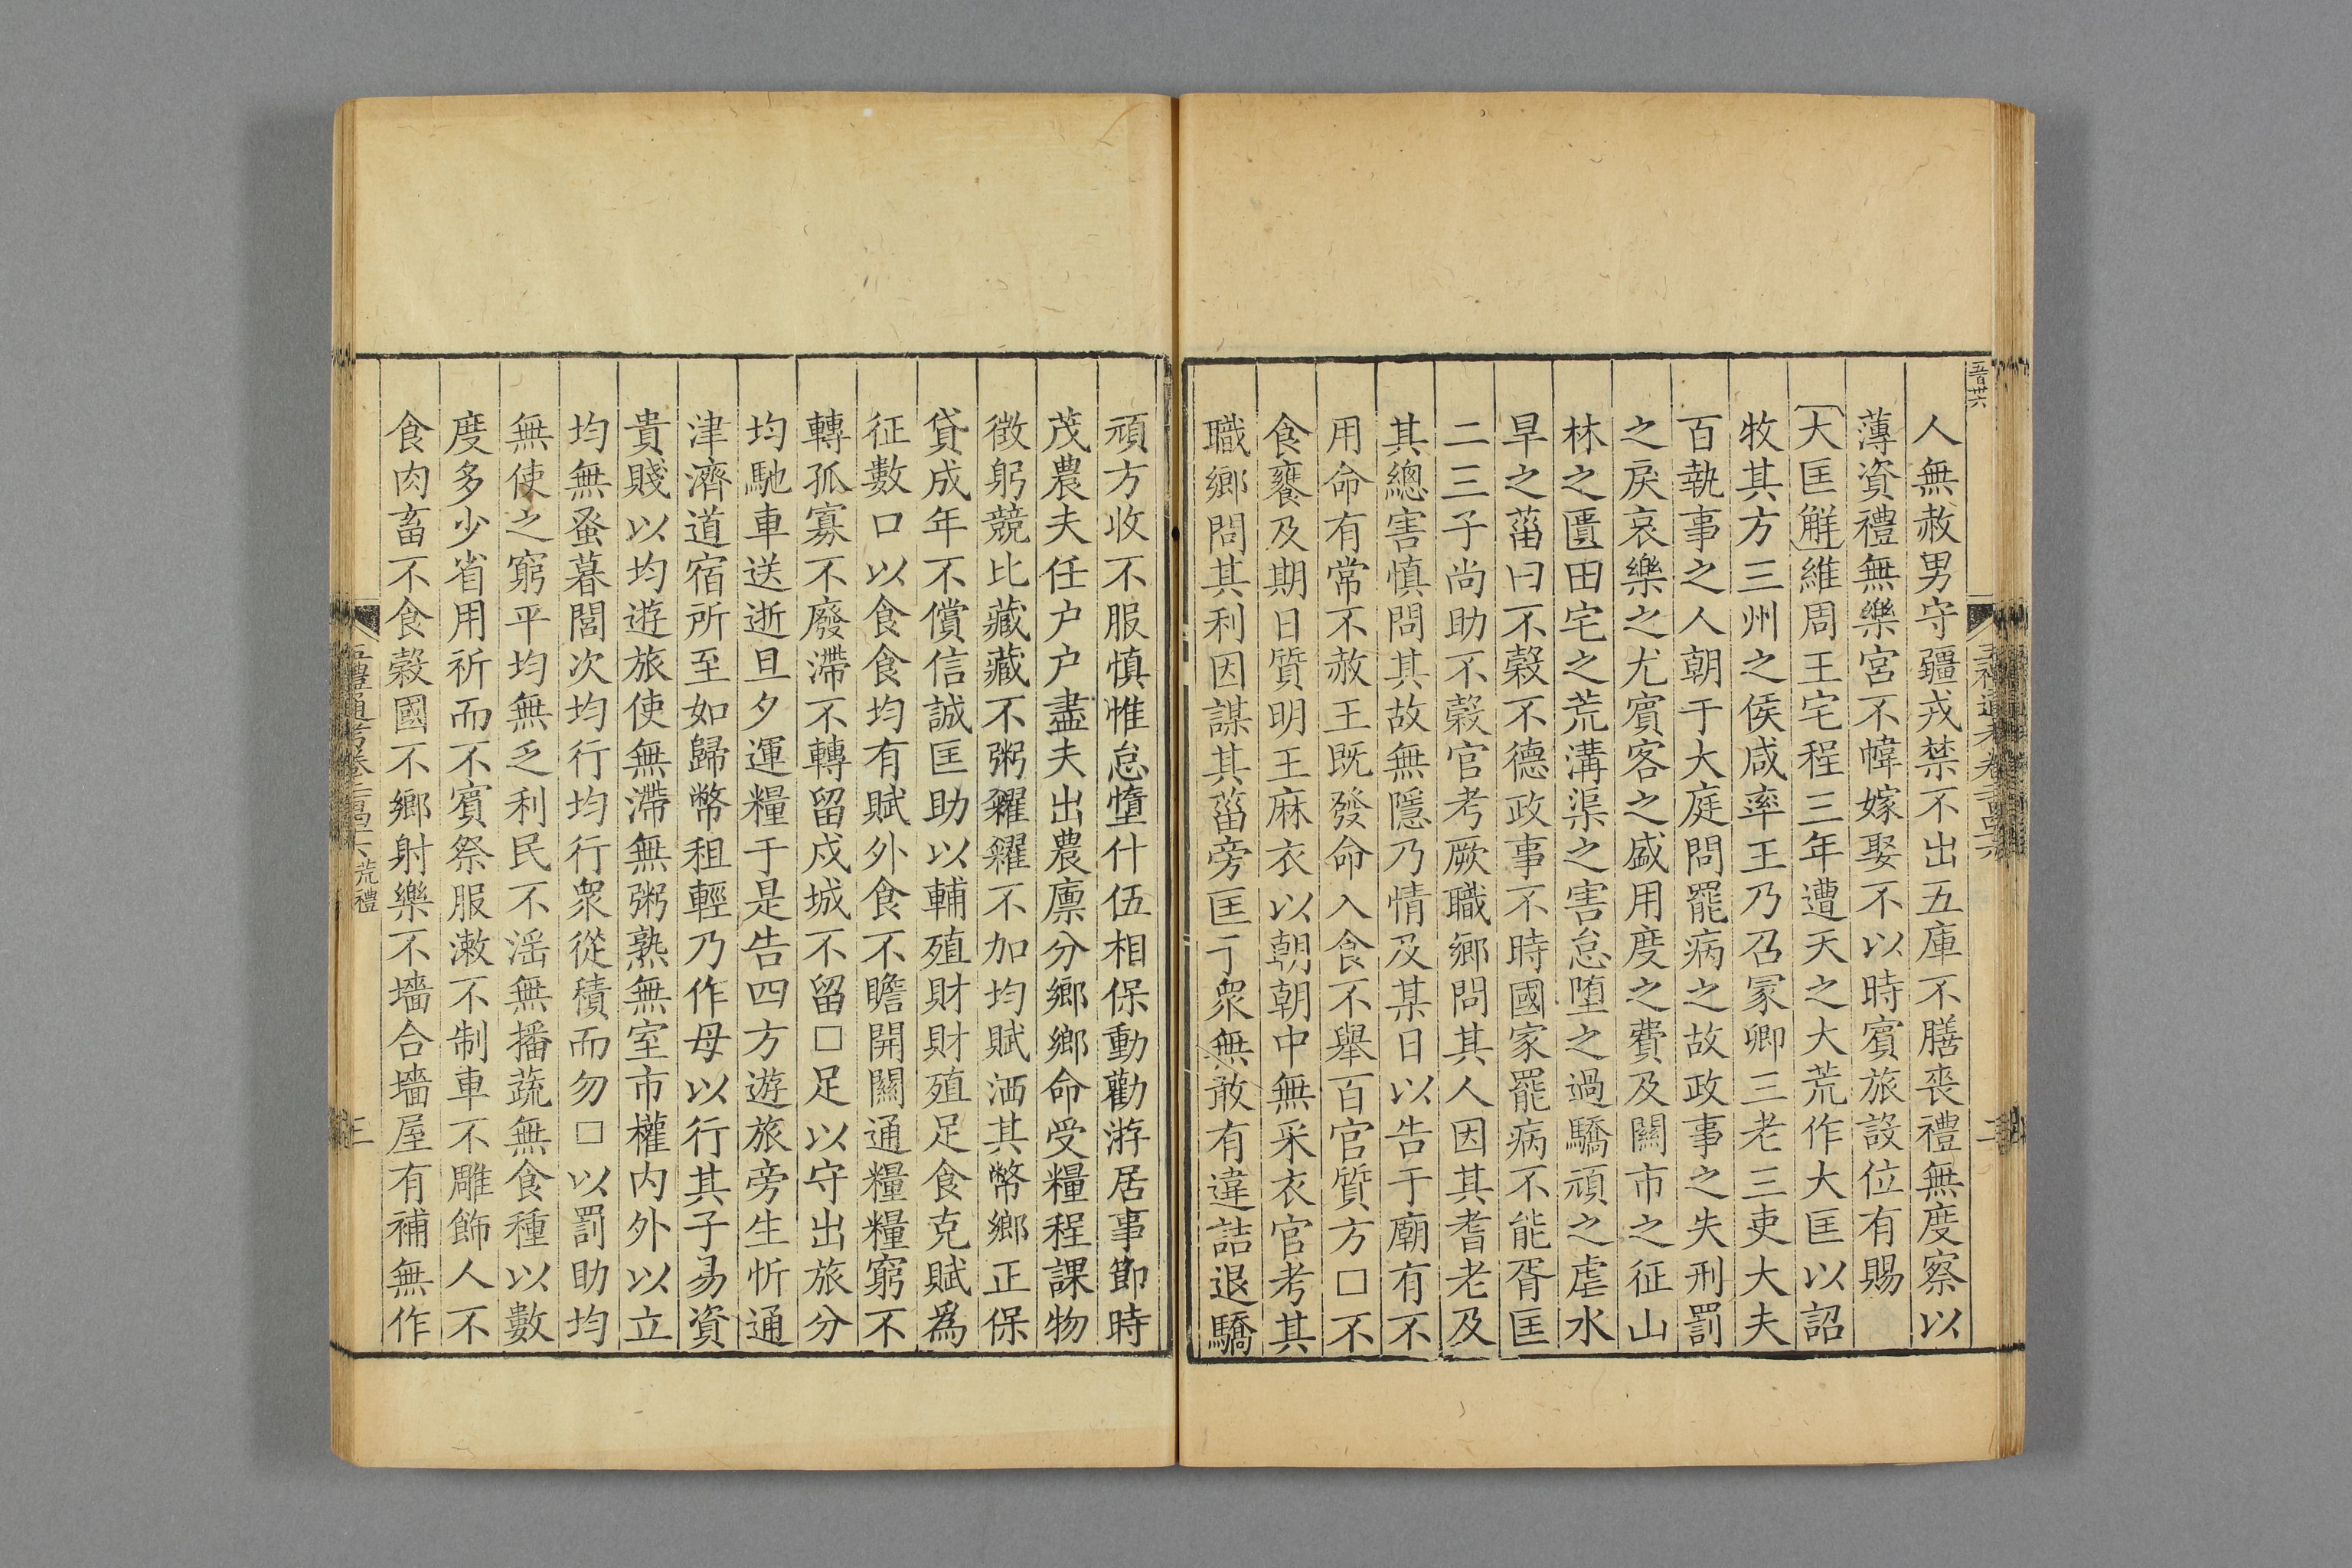 人無赦男守疆戎禁不出五庫不膳喪禮無度察以
薄資禮無樂宮不幃嫁娶不以時賓旅設位有賜
大匡解維周王宅程三年遭天之大荒作大匡以詔
牧其方三州之侯咸率王乃召冢卿三老三吏大夫
百執事之人朝于大庭問罷病之故政事之失刑罰
之戾哀樂之尤賓客之盛用度之費及關市之征山
林之匱田宅之荒溝渠之害怠堕之過驕頑之虐水
旱之菑曰不穀不德政事不時國家罷病不能胥匡
二三子尚助不穀官考厥職鄉問其人因其耆老及
其總害慎問其故無隱乃情及某日以告于廟有不
用命有常不赦王既發命入食不舉百官質方□不
食饔及期日質明王麻衣以朝朝中無采衣官考其
職鄉問其利因謀其菑旁匡于衆無敢有違詰退驕
頑方收不服慎惟怠墯什伍相保動勸游居事節時
茂農夫任户户盡夫出農廩分鄉鄉命受糧程課物
徴躬競比藏藏不粥糴糴不加均賦洒其幣鄉正保
貸成年不償信誠匡助以輔殖財財殖足食克賦爲
征數口以食食均有賦外食不贍開關通糧糧窮不
轉孤寡不廢滯不轉留戍城不留□足以守出旅分
均馳車送逝旦夕運糧于是告四方遊旅旁生忻通
津濟道宿所至如歸幣租輕乃作母以行其子易資
貴賤以均遊旅使無滯無粥熟無室市權内外以立
均無蚤暮閭次均行均行衆從積而勿□以罰助均
無使之窮平均無乏利民不淫無播蔬無食種以數
度多少省用祈而不賓祭服漱不制車不雕飾人不
食肉畜不食榖國不鄉射樂不墻合墻屋有補無作
荒禮
三